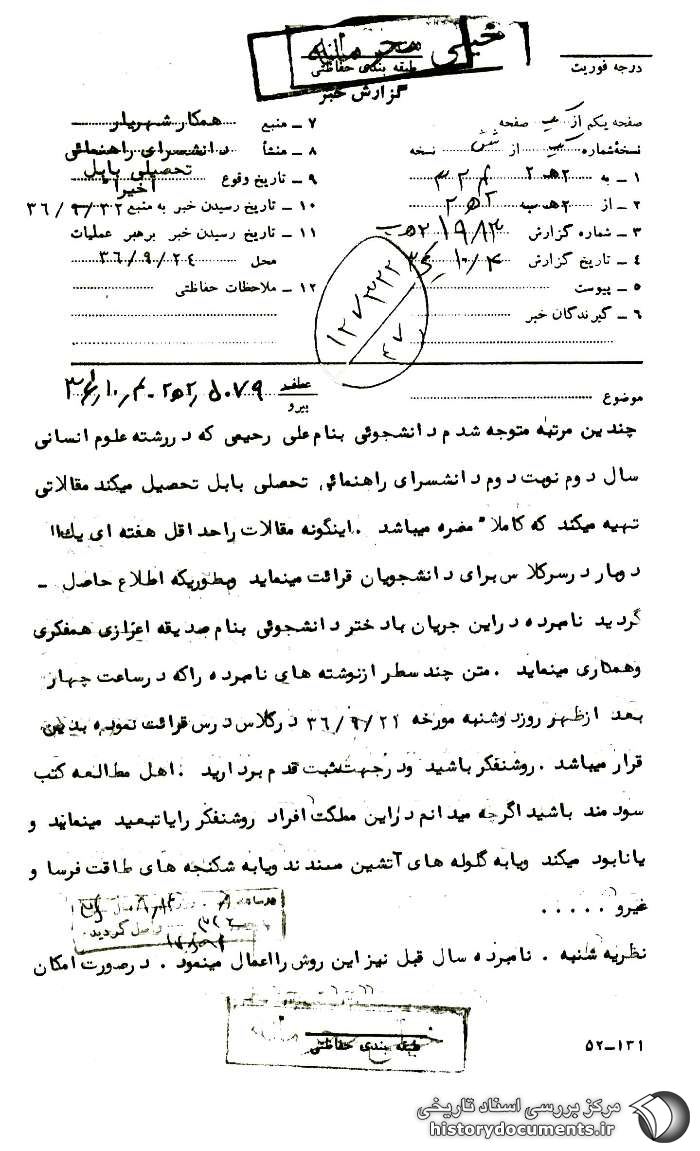 خیلی محرمانه
درجه فوریت
طبقه بندی حفاظتی
گزارش خبر
صفحه یکم از یک صفحه
نسخه شماره یک از شش نسخه
۱ ـ به ۳۲۴ ۲هـ۲
۲ ـ از ۲هـ ب ۲هـ۲
۳ ـ شماره گزارش
۴ ـ تاریخ گزارش ۳۶/۱۰/۴
۵ ـ پیوست
۶ ـ گیرندگان خبر
۷ ـ منبع همکار شهریار
۸ ـ منشأ دانشسرای راهنمائی تحصیلی بابل
۹ ـ تاریخ وقوع اخیرا
۱۰ ـ تاریخ رسیدن خبر به منبع ۳۶/۹/۲۲
۱۱ ـ تاریخ رسیدن خبر برهبر عملیات
محل ۳۶/۹/۲٤
۱۲ ـ ملاحظات حفاظتی
۱۲۷۳۲۲
۴۷
موضوع
عطف
پیرو
۵۰۷۹/۲هـ۲ ـ ۳۶/۱۰/۴
چندین مرتبه متوجه شدم دانشجوئی بنام علی رحیمی که در رشته علوم انسانی
سال دوم نوبت دوم دانشسرای راهنمائی تحصلی بابل تحصیل میکند مقالاتی
تهیه میکند که کاملا" مضره میباشد . اینگونه مقالات را حداقل هفته ای یك اا
دوبار در سرکلاس برای دانشجویان قرائت مینماید وبطوریکه اطلاع حاصل ـ
گردید نامبرده در این جریان با دختر دانشجوئی بنام صدیقه اعزازی همفکری
وهمکاری مینماید . متن چند سطر از نوشته های نامبرده را که در ساعت چهار
بعد از ظهر روز دوشنبه مورخه ۳۶/۹/۲۱ در کلاس درس قرائت نموده بدین
قرار میباشد . روشنفکر باشید ودر جهت مثبت قدم بردارید . اهل مطالعه کتب
سودمند باشید اگرچه میدانم در این مملکت افراد روشنفکر را یا تبعید مینمایند و
یا نابود میکند ویا به گلوله های آتشین میبندند ویا به شکنجه های طاقت فرسا و
غیرو . . . . .
واصل گردید
نظریه شنبه . نامبرده سال قبل نیز این روش را اعمال مینمود . در صورت امکان
طبقه بندی حفاظتی
۵۲-۱۳۱
مرکز بررسی اسناد تاریخی
historydocuments.ir